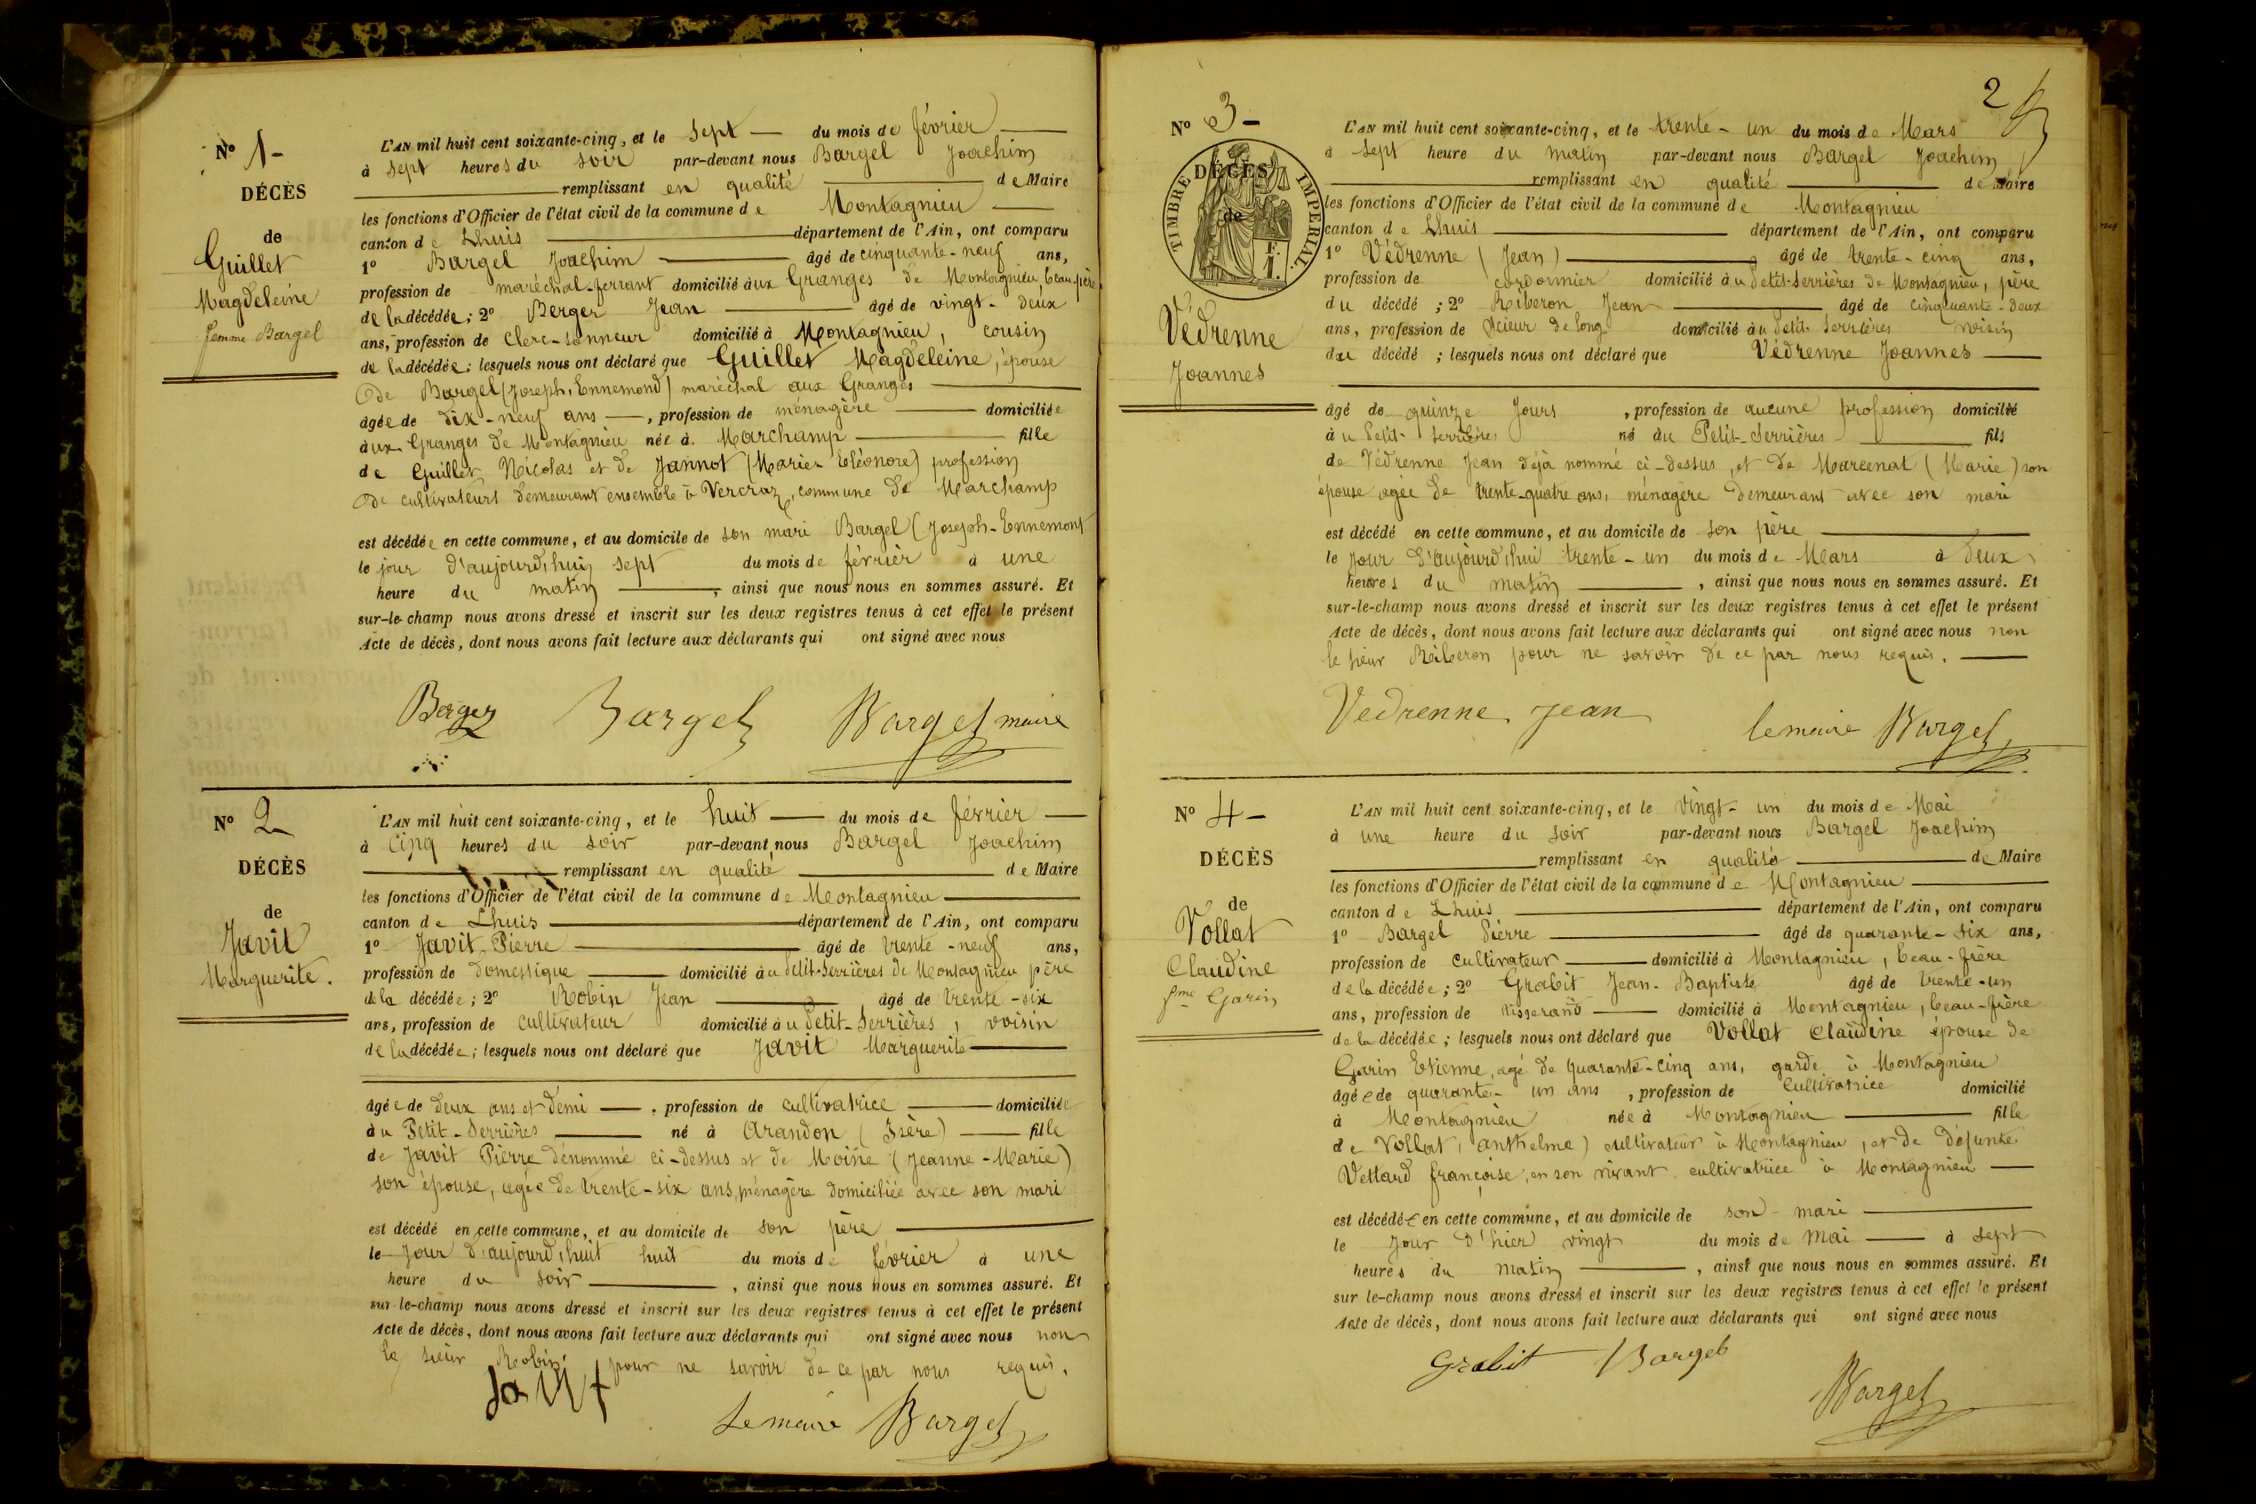 N° 1-
DÉCÈS
de
Guillet
Magdeleine
femme Bargel
L'AN mil huit cent soixante-cinq, et le sept du mois de février
à sept heures du soir par-devant nous Bargel Joachim
remplissant en qualité de Maire
les fonctions d'Officier de l'état civil de la commune de Montagnieu
canton de Lhuis département de l'Ain, ont comparu
1° Bargel Joachim âgé de cinquante-neuf ans,
profession de maréchal-ferrant domicilié aux Granges de Montagnieu, beau-père
de la décédée; 2° Berger Jean âgé de vingt-deux
ans, profession de Clerc-sonneur domicilié à Montagnieu, cousin
de la décédée; lesquels nous ont déclaré que Guillet Magdeleine, épouse
de Bargel (Joseph, Ennemond) maréchal aux Granges
âgée de dix-neuf ans, profession de ménagère domiciliée
aux Granges de Montagnieu née à Marchamp fille
de Guillet Nicolas et de Jannot (Marie-Eléonore) profession
de cultivateurs demeurant ensemble à Vercraz, commune de Marchamp
est décédée en cette commune, et au domicile de son mari Bargel (Joseph-Ennemont
le jour d'aujourd'hui sept du mois de février à une
heure du matin, ainsi que nous nous en sommes assuré. Et
sur-le-champ nous avons dressé et inscrit sur les deux registres tenus à cet effet le présent
Acte de décès, dont nous avons fait lecture aux déclarants qui ont signé avec nous
Berger Bargel Bargel maire
N° 2
DÉCÈS
de
Javit
Marguerite.
L'AN mil huit cent soixante-cinq, et le huit du mois de février
à cinq heures du soir par-devant nous Bargel Joachim
remplissant en qualité de Maire
les fonctions d'Officier de l'état civil de la commune de Montagnieu
canton de Lhuis département de l'Ain, ont comparu
1° Javit Pierre âgé de trente-neuf ans,
profession de domestique domicilié au Petit-Serrières de Montagnieu père
de la décédée; 2° Robin Jean âgé de trente-six
ans, profession de cultivateur domicilié au Petit-Serrières, voisin
de la décédée; lesquels nous ont déclaré que Javit Marguerite
âgée de deux ans et demi, profession de cultivatrice domiciliée
au Petit-Serrières né à Arandon (Isère) fille
de Javit Pierre dénommé ci-dessus et de Moine (Jeanne-Marie)
son épouse, agée de trente-six ans, ménagère domiciliée avec son mari
est décédé en cette commune, et au domicile de son père
le jour d'aujourd'huit huit du mois de février à une
heure du soir, ainsi que nous nous en sommes assuré. Et
sur-le-champ nous avons dressé et inscrit sur les deux registres tenus à cet effet le présent
Acte de décès, dont nous avons fait lecture aux déclarants qui ont signé avec nous non
le sieur Robin pour ne savoir de ce par nous requis.
Javit
Le maire Bargel
2
N° 3-
DÉCÈS
de
TIMBRE IMPERIAL.
Védrenne
Joannes
L'AN mil huit cent soixante-cinq, et le trente-un du mois de Mars
à sept heure du matin par-devant nous Bargel Joachim
remplissant en qualité de Maire
les fonctions d'Officier de l'état civil de la commune de Montagnieu
canton de Lhuis département de l'Ain, ont comparu
1° Védrenne (Jean) âgé de trente-cinq ans,
profession de cordonnier domicilié au Petit-Serrières de Montagnieu, père
du décédé; 2° Riberon Jean âgé de cinquante-deux
ans, profession de scieur de long domicilié au Petit-Serrières voisin
du décédé; lesquels nous ont déclaré que Védrenne Joannes
âgé de quinze jours, profession de aucune profession domicilié
au Petit-Serrières né du Petit-Serrières fils
de Védrenne Jean déjà nommé ci-dessus, et de Marcenat (Marie) son
épouse agée de trente-quatre ans, ménagère demeurant avec son mari
est décédé en cette commune, et au domicile de son père
le jour d'aujourd'hui trente-un du mois de Mars à deux
heures du matin, ainsi que nous nous en sommes assuré. Et
sur-le-champ nous avons dressé et inscrit sur les deux registres tenus à cet effet le présent
Acte de décès, dont nous avons fait lecture aux déclarants qui ont signé avec nous non
le sieur Riberon pour ne savoir de ce par nous requis.
Vedrenne Jean le maire Bargel
N° 4-
DÉCÈS
de
Vollat
Claudine
fme Garin
L'AN mil huit cent soixante-cinq, et le vingt-un du mois de Mai
à une heure du soir par-devant nous Bargel Joachim
remplissant en qualité de Maire
les fonctions d'Officier de l'état civil de la commune de Montagnieu
canton de Lhuis département de l'Ain, ont comparu
1° Bargel Pierre âgé de quarante-six ans,
profession de cultivateur domicilié à Montagnieu, beau-frère
de la décédée; 2° Grabit Jean-Baptiste âgé de trente-un
ans, profession de tisserand domicilié à Montagnieu, beau-frère
de la décédée; lesquels nous ont déclaré que Vollat Claudine épouse de
Garin Etienne, agé de quarante-cinq ans, garde à Montagnieu
âgée de quarante-un ans, profession de cultivatrice domicilié
à Montagnieu née à Montagnieu fille
de Vollat (Anthelme) cultivateur à Montagnieu, et de défunte
Vettard françoise, en son vivant cultivatrice à Montagnieu
est décédée en cette commune, et au domicile de son mari
le jour d'hier vingt du mois de Mai à sept
heures du matin, ainsi que nous nous en sommes assuré. Et
sur le-champ nous avons dressé et inscrit sur les deux registres tenus à cet effet le présent
Acte de décès, dont nous avons fait lecture aux déclarants qui ont signé avec nous
Grabit Bargel
Bargel